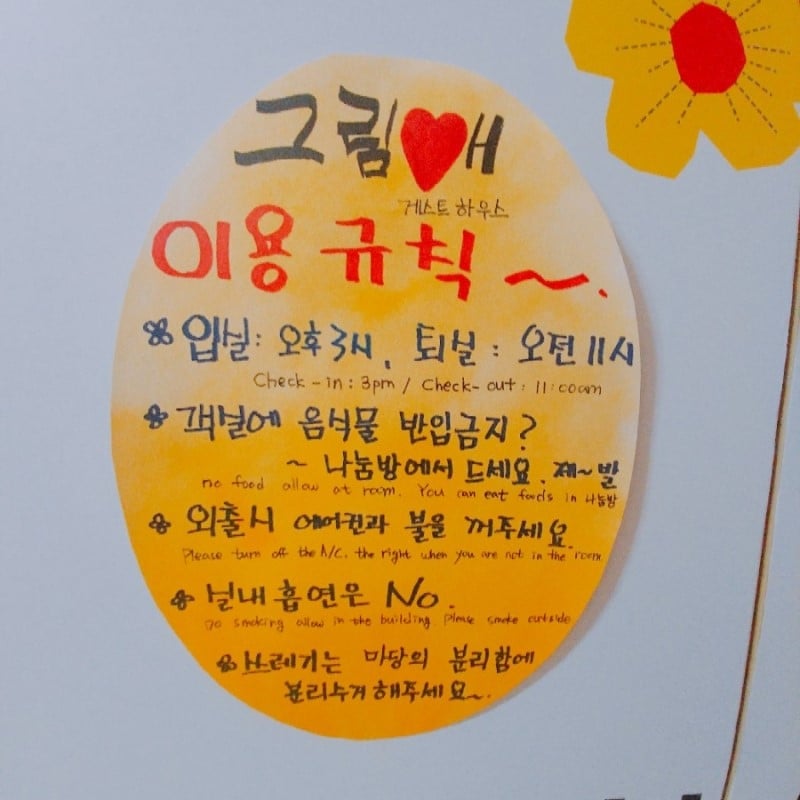 그림♥애
게스트 하우스
이용 규칙 ~.
입실: 오후 3시, 퇴실: 오전 11시
Check-in: 3pm / Check-out: 11:00am
객실에 음식물 반입금지?
~ 나눔방에서 드세요. 제~발
no food allow at room. You can eat foods in 나눔방
외출시 에어컨과 불을 꺼주세요.
Please turn off the A/C, the right when you are not in the room.
실내 흡연은 No.
no smoking allow in the building. Please smoke outside
쓰레기는 마당의 분리함에
분리수거 해주세요~.